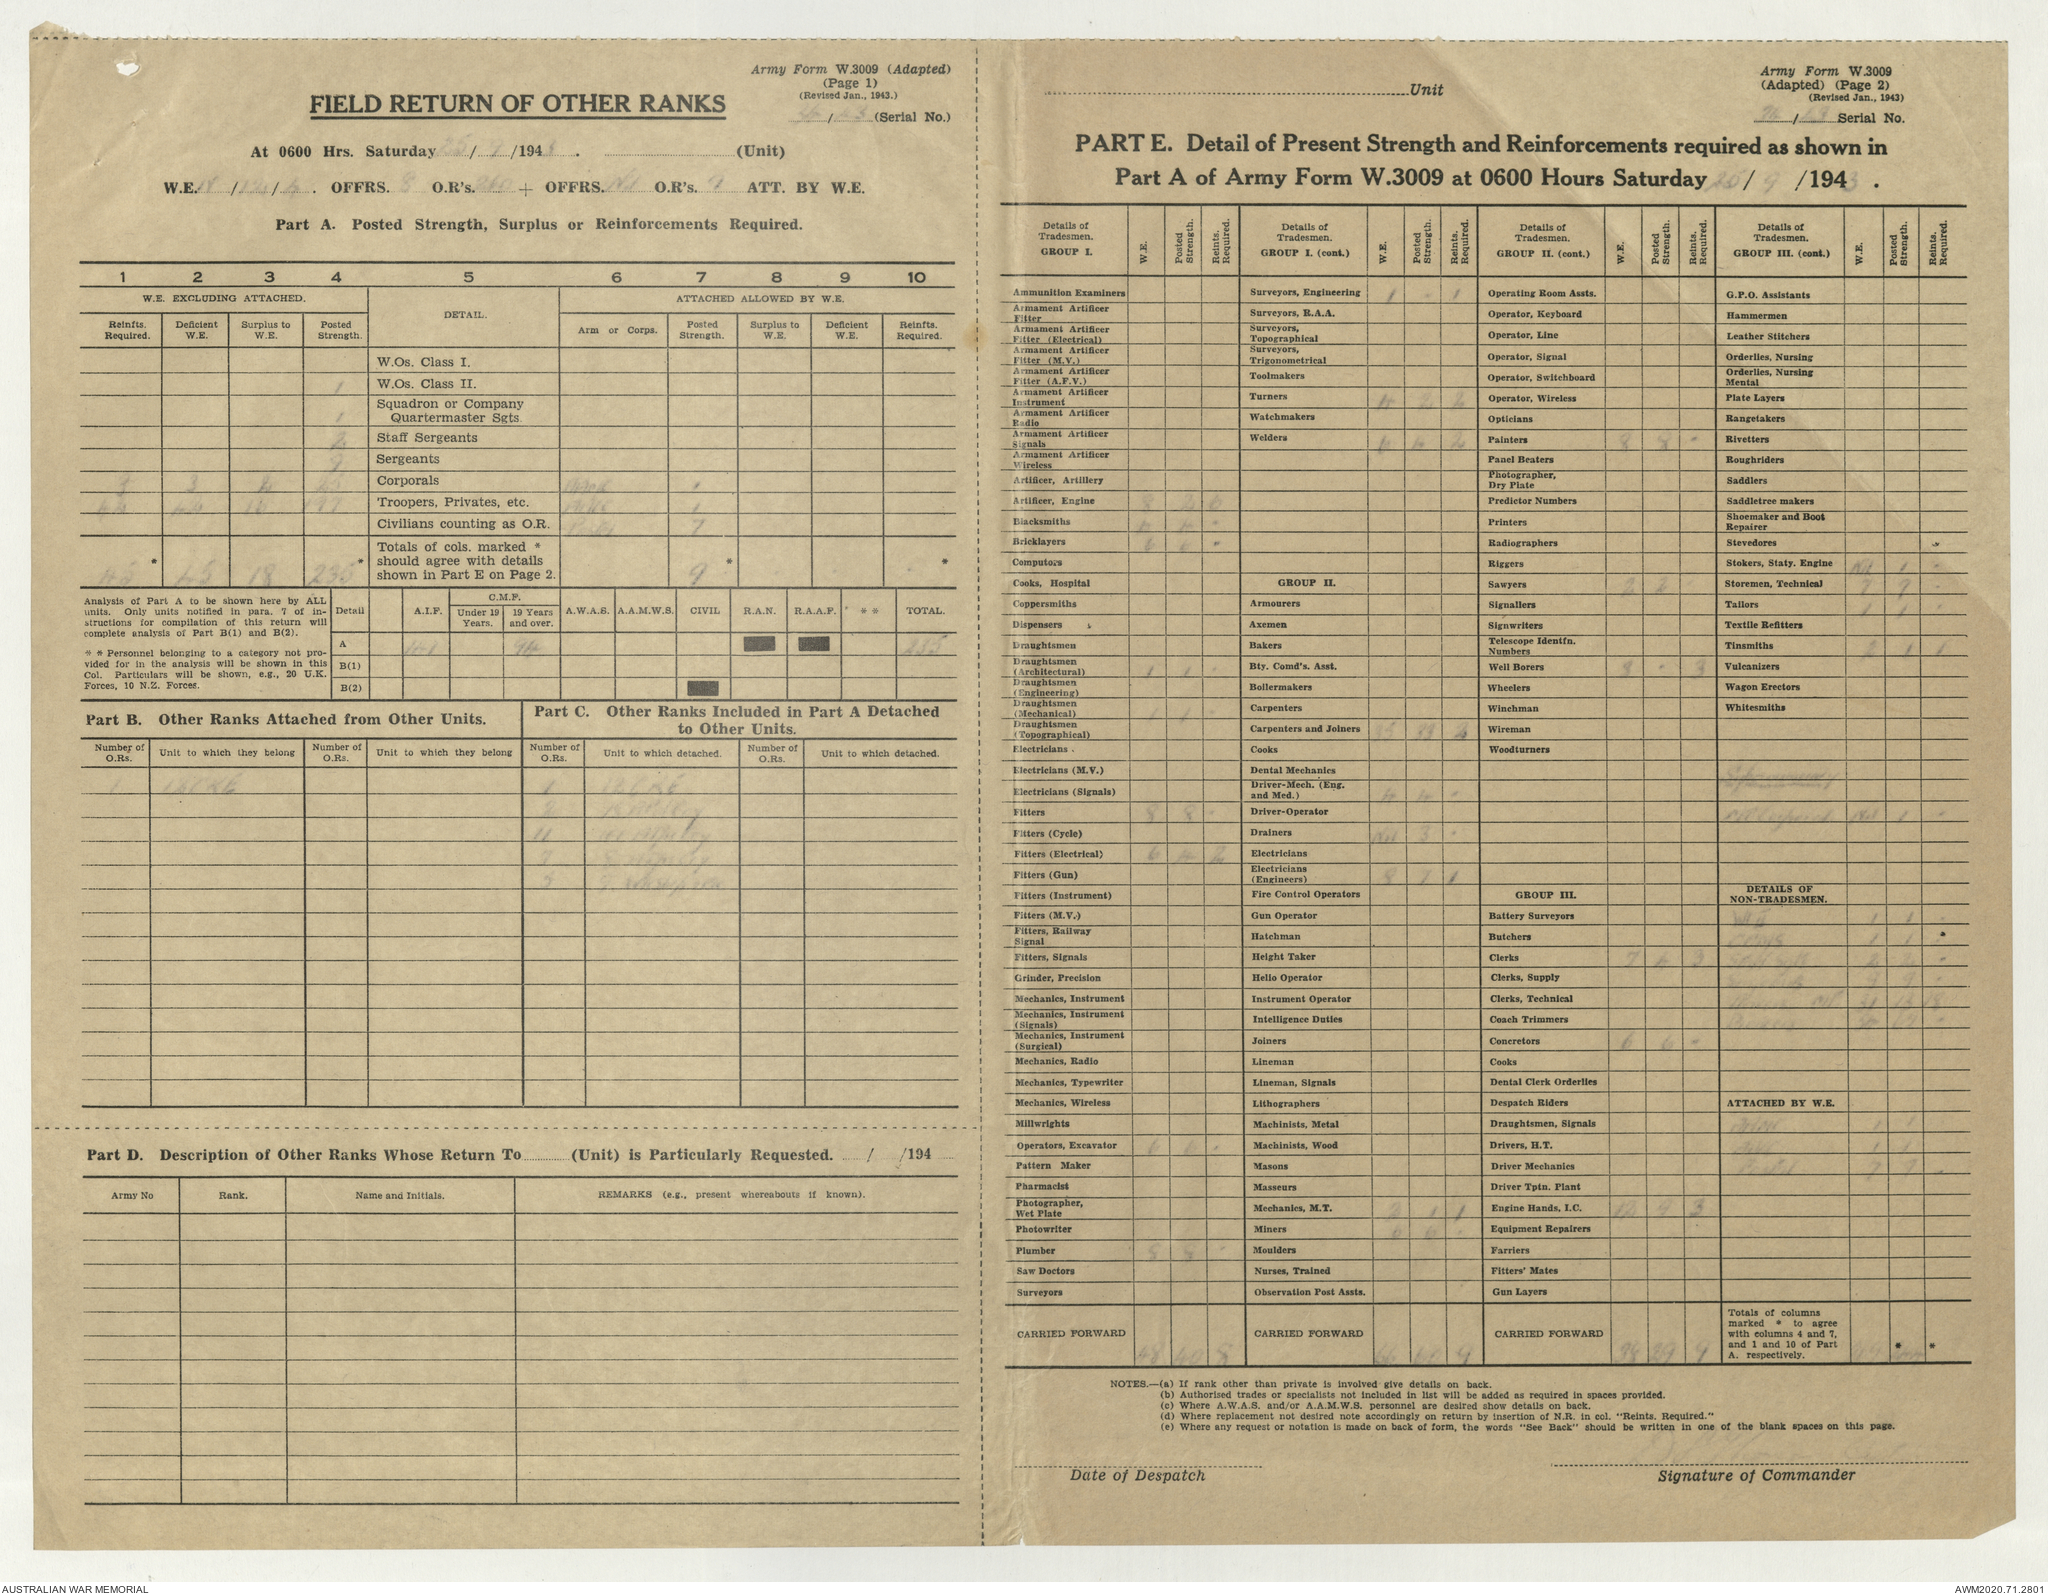 Army Form W.3009 (Adapted)
(Page 1)
(Revised Jan., 1943.)
FIELD RETURN OF OTHER RANKS
/ (Serial No.)
At 0600 Hrs. Saturday 25/9/1943. (Unit)
W.E. / / . OFFRS. 8 O.R's. 260 + OFFRS. Nil O.R's. 9 ATT. BY W.E.
Part A. Posted Strength, Surplus or Reinforcements Required.
1 2 3 4 5 6 7 8 9 10
W.E. EXCLUDING ATTACHED. DETAIL. ATTACHED ALLOWED BY W.E.
Reinfts. Required. Deficient W.E. Surplus to W.E. Posted Strength. Arm or Corps. Posted Strength. Surplus to W.E. Deficient W.E. Reinfts. Required.
W.Os. Class I.
1 W.Os. Class II.
1 Squadron or Company Quartermaster Sgts.
2 Staff Sergeants
9 Sergeants
3 3 Corporals
Troopers, Privates, etc. 1
Civilians counting as O.R. 7
Totals of cols. marked *
should agree with details
shown in Part E on Page 2.
45 45 18 * 235 * 9 * *
Analysis of Part A to be shown here by ALL
units. Only units notified in para. 7 of in-
structions for compilation of this return will
complete analysis of Part B(1) and B(2).
* * Personnel belonging to a category not pro-
vided for in the analysis will be shown in this
Col. Particulars will be shown, e.g., 20 U.K.
Forces, 10 N.Z. Forces.
Detail A.I.F. C.M.F. Under 19 Years. 19 Years and over. A.W.A.S. A.A.M.W.S. CIVIL R.A.N. R.A.A.F. * * TOTAL.
A 141 94 235
B(1)
B(2)
Part B. Other Ranks Attached from Other Units.
Number of O.Rs. Unit to which they belong Number of O.Rs. Unit to which they belong
1
Part C. Other Ranks Included in Part A Detached
to Other Units.
Number of O.Rs. Unit to which detached. Number of O.Rs. Unit to which detached.
1
11
7
Part D. Description of Other Ranks Whose Return To (Unit) is Particularly Requested. / /194
Army No Rank. Name and Initials. REMARKS (e.g., present whereabouts if known).
Unit
Army Form W.3009
(Adapted) (Page 2)
(Revised Jan., 1943)
/ Serial No.
PART E. Detail of Present Strength and Reinforcements required as shown in
Part A of Army Form W.3009 at 0600 Hours Saturday 25/9/1943.
Details of Tradesmen. GROUP I. W.E. Posted Strength. Reints. Required.
Ammunition Examiners
Armament Artificer Fitter
Armament Artificer Fitter (Electrical)
Armament Artificer Fitter (M.V.)
Armament Artificer Fitter (A.F.V.)
Armament Artificer Instrument
Armament Artificer Radio
Armament Artificer Signals
Armament Artificer Wireless
Artificer, Artillery
Artificer, Engine 8 2 6
Blacksmiths 4 4 -
Bricklayers 6 6 -
Computors
Cooks, Hospital
Coppersmiths
Dispensers
Draughtsmen
Draughtsmen (Architectural) 1 1 -
Draughtsmen (Engineering)
Draughtsmen (Mechanical) 1 1 -
Draughtsmen (Topographical)
Electricians
Electricians (M.V.)
Electricians (Signals)
Fitters 8 8 -
Fitters (Cycle)
Fitters (Electrical) 6 4 2
Fitters (Gun)
Fitters (Instrument)
Fitters (M.V.)
Fitters, Railway Signal
Fitters, Signals
Grinder, Precision
Mechanics, Instrument
Mechanics, Instrument (Signals)
Mechanics, Instrument (Surgical)
Mechanics, Radio
Mechanics, Typewriter
Mechanics, Wireless
Millwrights
Operators, Excavator 6 6 -
Pattern Maker
Pharmacist
Photographer, Wet Plate
Photowriter
Plumber 8 8 -
Saw Doctors
Surveyors
CARRIED FORWARD 48 40 8
Details of Tradesmen. GROUP I. (cont.) W.E. Posted Strength. Reints. Required.
Surveyors, Engineering 1 - 1
Surveyors, R.A.A.
Surveyors, Topographical
Surveyors, Trigonometrical
Toolmakers
Turners 4 2 2
Watchmakers
Welders 6 4 2
GROUP II.
Armourers
Axemen
Bakers
Bty. Comd's. Asst.
Boilermakers
Carpenters
Carpenters and Joiners 35 33 2
Cooks
Dental Mechanics
Driver-Mech. (Eng. and Med.) 4 4 -
Driver-Operator
Drainers Nil 3 -
Electricians
Electricians (Engineers) 8 7 1
Fire Control Operators
Gun Operator
Hatchman
Height Taker
Helio Operator
Instrument Operator
Intelligence Duties
Joiners
Lineman
Lineman, Signals
Lithographers
Machinists, Metal
Machinists, Wood
Masons
Masseurs
Mechanics, M.T. 2 1 1
Miners 6 6 -
Moulders
Nurses, Trained
Observation Post Assts.
CARRIED FORWARD 66 60 9
Details of Tradesmen. GROUP II. (cont.) W.E. Posted Strength. Reints. Required.
Operating Room Assts.
Operator, Keyboard
Operator, Line
Operator, Signal
Operator, Switchboard
Operator, Wireless
Opticians
Painters 8 8 -
Panel Beaters
Photographer, Dry Plate
Predictor Numbers
Printers
Radiographers
Riggers
Sawyers 2 2
Signallers
Signwriters
Telescope Identfn. Numbers
Well Borers 3 - 3
Wheelers
Winchman
Wireman
Woodturners
GROUP III.
Battery Surveyors
Butchers
Clerks 7 4 3
Clerks, Supply
Clerks, Technical
Coach Trimmers
Concretors 6 6 -
Cooks
Dental Clerk Orderlies
Despatch Riders
Draughtsmen, Signals
Drivers, H.T.
Driver Mechanics
Driver Tptn. Plant
Engine Hands, I.C. 12 9 3
Equipment Repairers
Farriers
Fitters' Mates
Gun Layers
CARRIED FORWARD 38 29 9
Details of Tradesmen. GROUP III. (cont.) W.E. Posted Strength. Reints. Required.
G.P.O. Assistants
Hammermen
Leather Stitchers
Orderlies, Nursing
Orderlies, Nursing Mental
Plate Layers
Rangetakers
Rivetters
Roughriders
Saddlers
Saddletree makers
Shoemaker and Boot Repairer
Stevedores
Stokers, Staty. Engine Nil 1 -
Storemen, Technical 7 7 -
Tailors 1 1 -
Textile Refitters
Tinsmiths 2 1 1
Vulcanizers
Wagon Erectors
Whitesmiths
Nil 1 -
DETAILS OF NON-TRADESMEN.
W.O. II 1 1 -
1 1 *
2 2 -
9 9 -
ATTACHED BY W.E.
1 1
1 1
7 7 -
Totals of columns
marked * to agree
with columns 4 and 7,
and 1 and 10 of Part
A. respectively. * *
NOTES.—(a) If rank other than private is involved give details on back.
(b) Authorised trades or specialists not included in list will be added as required in spaces provided.
(c) Where A.W.A.S. and/or A.A.M.W.S. personnel are desired show details on back.
(d) Where replacement not desired note accordingly on return by insertion of N.R. in col. "Reints. Required."
(e) Where any request or notation is made on back of form, the words "See Back" should be written in one of the blank spaces on this page.
Date of Despatch
Signature of Commander
AUSTRALIAN WAR MEMORIAL
AWM2020.71.2801